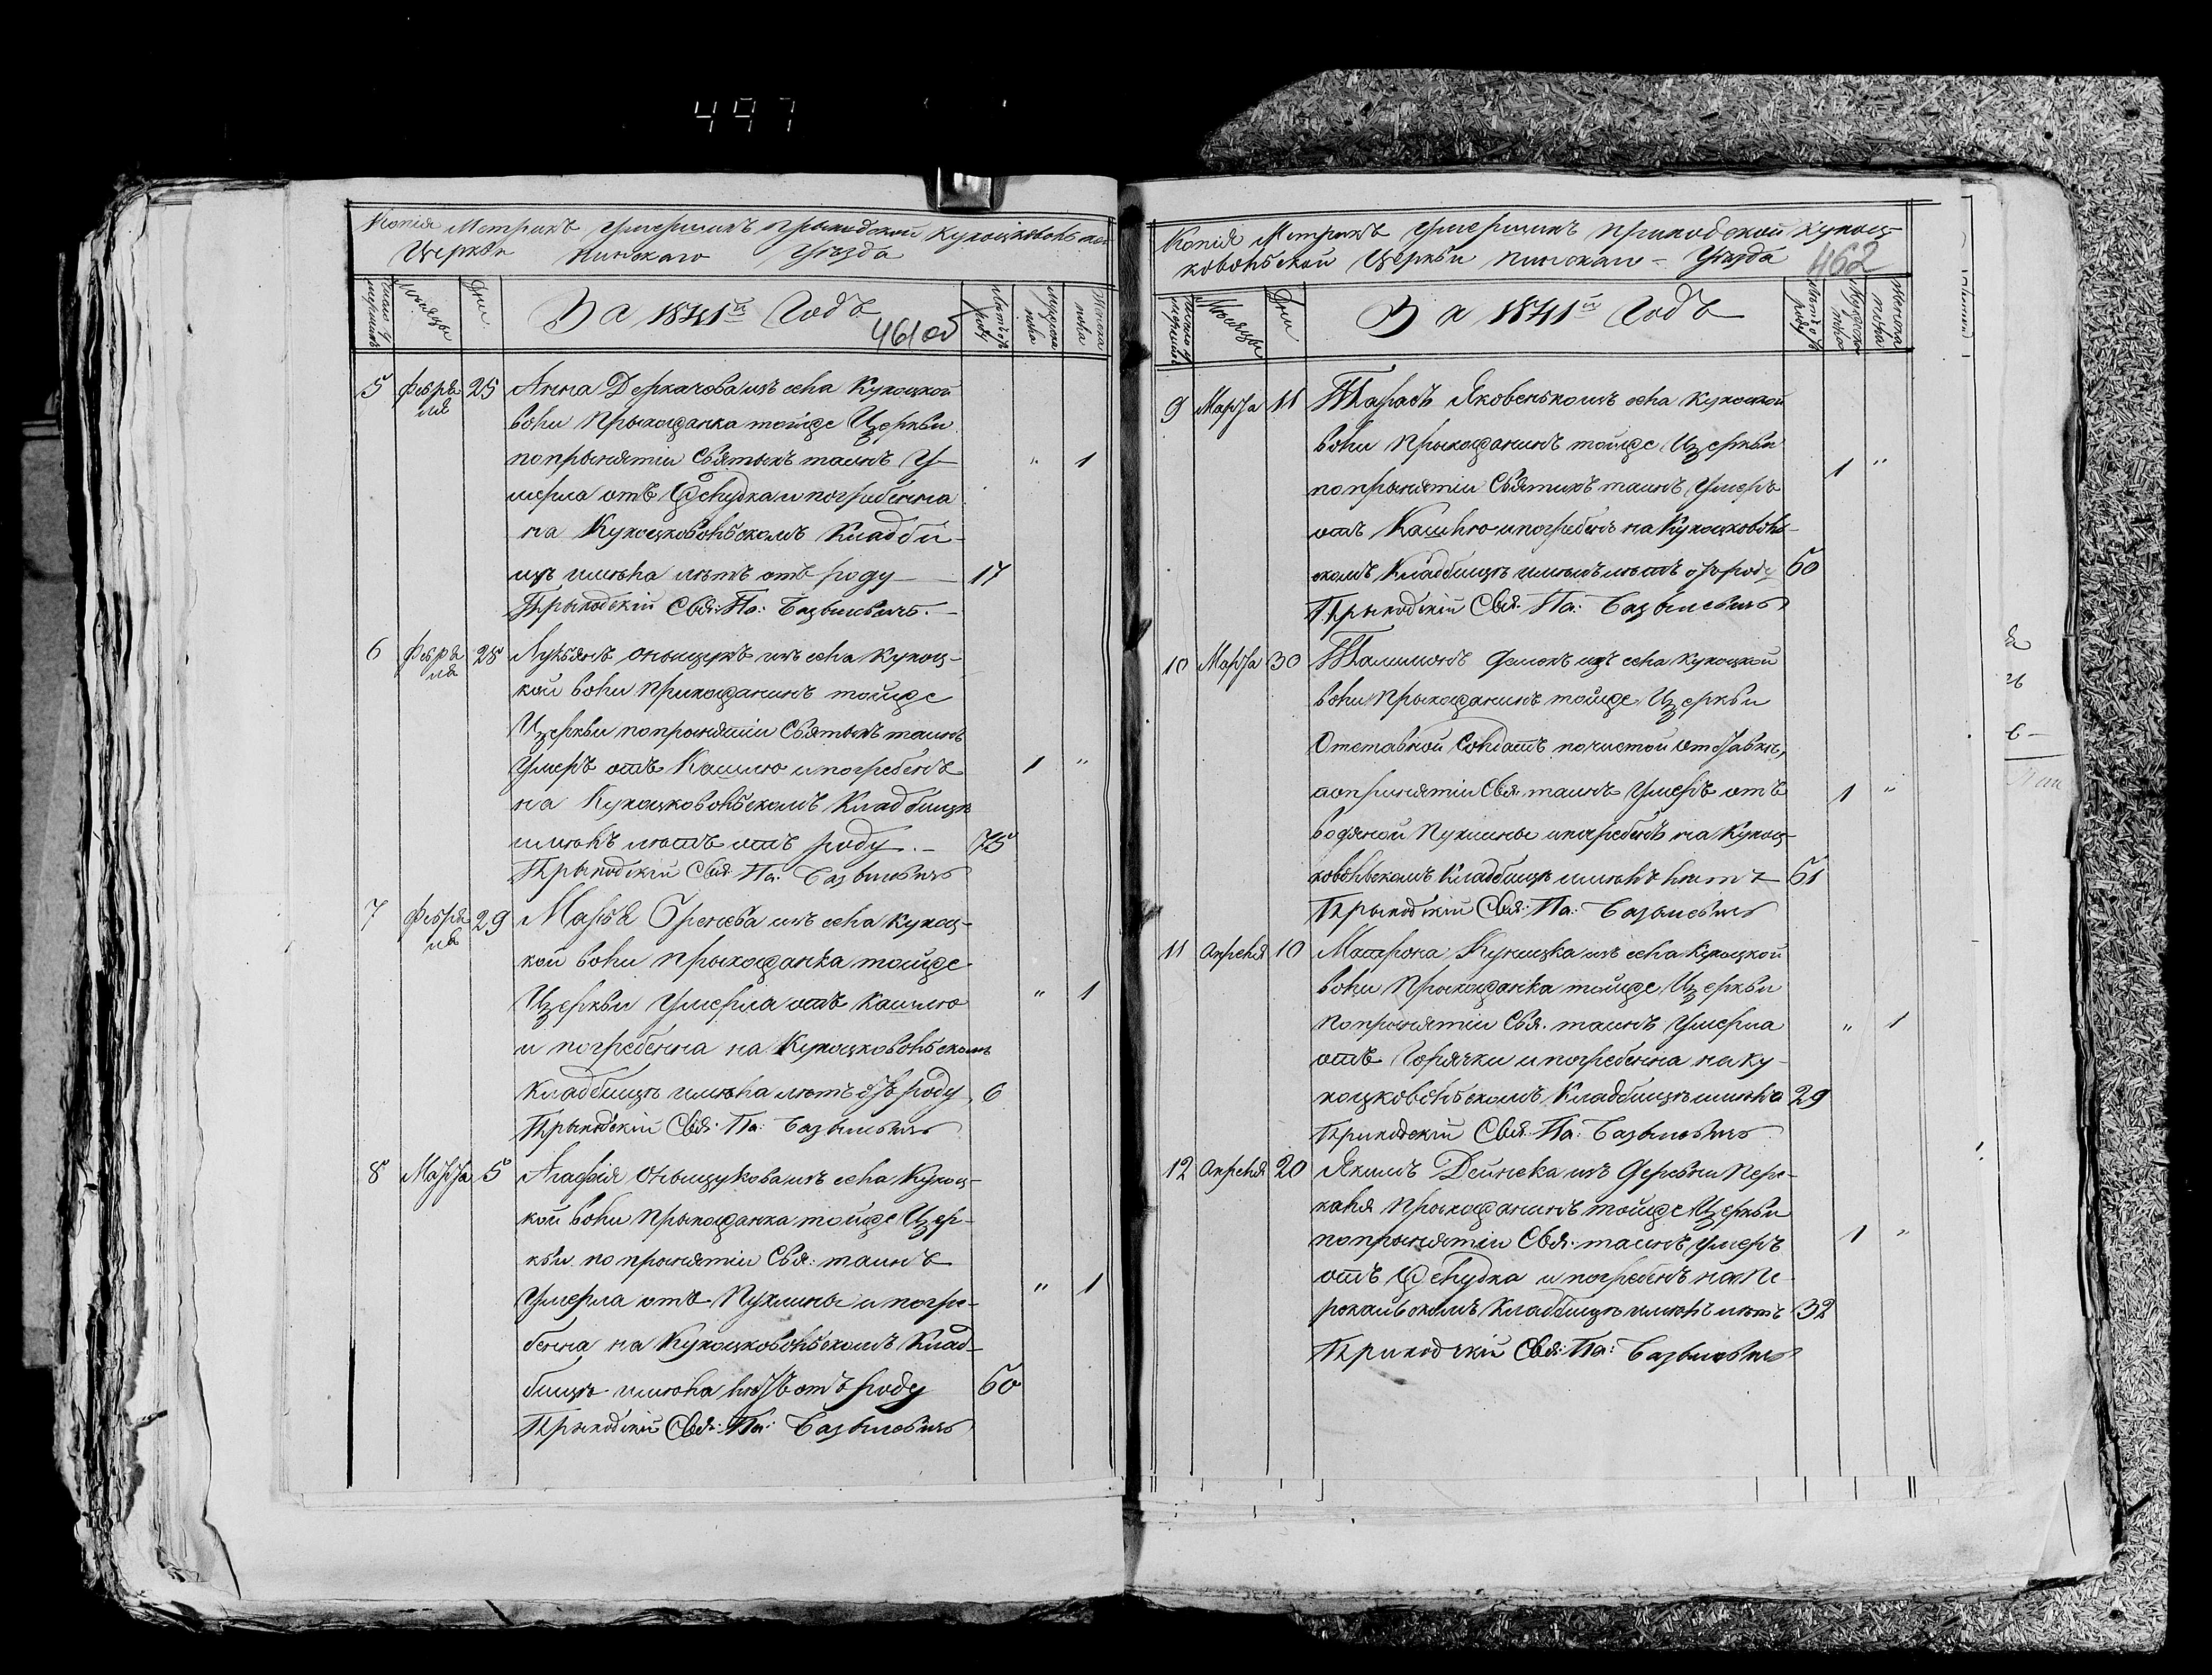 497
Копія Метрикъ Умершихъ Прыходской Кухоцковольской
Церкви Пинскаго Уѣзда
Число Умершихъ
Мѣсяцы
Дни
За 1841й Годъ
461об
Лѣтъ отъ роду
Мужеска пола
Женска пола
5 Февраля 25 Анна Деркачова изъ села Кухоцкой
воли Прыхожанка тойже Церкви
попрынятіи Святыхъ таинъ У-
мерла отъ Желудка и погребенна " 1
на Кухоцковольскомъ Кладби-
щѣ имѣла лѣтъ отъ роду 17
Прыходскій Свя: Па: Базылевичъ.
6 Февраля 28 Лукьянъ Оныщукъ изъ села Кухоц-
кой воли Прихожанинъ тойже
Церкви попрынятіи Святыхъ таинъ
Умеръ отъ Кашлю и погребенъ 1 "
на Кухоцковольскомъ Кладбищѣ
имѣлъ лѣтъ отъ роду. 75
Прыходскій Свя: Па: Базылевичъ
7 Февраля 29 Марья изъ села Кухоц-
кой воли прыхожанка тойже
Церкви Умерла отъ Кашлю " 1
и погребенна на Кухоцковольскомъ
Кладбищѣ имѣла лѣтъ отъ роду 6
Прыходскій Свя: Па: Базылевичъ
8 Марта 5 Агафія Оныщукова изъ села Кухоц-
кой воли Прыхожанка тойже Цер-
кви по прынятіи Свя: таинъ
Умерла отъ Пухлины и погре- " 1
бенна на Кухоцковольскомъ Клад-
бищѣ имѣла лѣтъ отъ роду 60
Прыходскій Свя: Па: Базылевичъ
Копія Метрикъ Умершихъ Приходской Кухоц-
ковольской Церкви Пинскаго Уѣзда
462
Число Умершихъ
Мѣсяцы
Дни
За 1841й Годъ
Лѣтъ отъ роду
Мужеска пола
Женска пола
9 Марта 11 Тарасъ Яковенько изъ села Кухоцкой
воли Прыхожанинъ тойже Церкви
попрынятіи Святыхъ таинъ Умеръ 1 "
отъ Кашлю и погребенъ на Кухоцковоль-
скомъ Кладбищѣ имѣлъ лѣтъ отъ роду 60
Прыходскій Свя: Па: Базылевичъ
10 Марта 30 изъ села Кухоцкой
воли Прыхожанинъ тойже Церкви
Отставной Солдатъ по чистой отставкѣ,
попринятіи Свя таинъ Умеръ отъ 1 "
водяной Пухлины и погребенъ на Кухоц-
ковольскомъ Кладбищѣ имѣлъ лѣтъ 61
Прыходскій Свя: Па: Базылевичъ
11 Апреля 10 Матрона изъ села Кухоцкой
воли Прыхожанка тойже Церкви
Попрынятіи Свя. таинъ Умерла " 1
отъ Горячки и погребенна на Ку-
хоцковольскомъ Кладбищѣ имѣла 29
Приходскій Свя: Па: Базылевичъ
12 Апреля 20 Якимъ Дейнека изъ Деревни Пере-
каля Прыхожанинъ тойже Церкви
попрынятіи Свя. таинъ Умеръ 1 "
отъ Желудка и погребенъ на Пе-
рекальскомъ Кладбищѣ имѣлъ лѣтъ 32
Приходскій Свя: Па: Базылевичъ